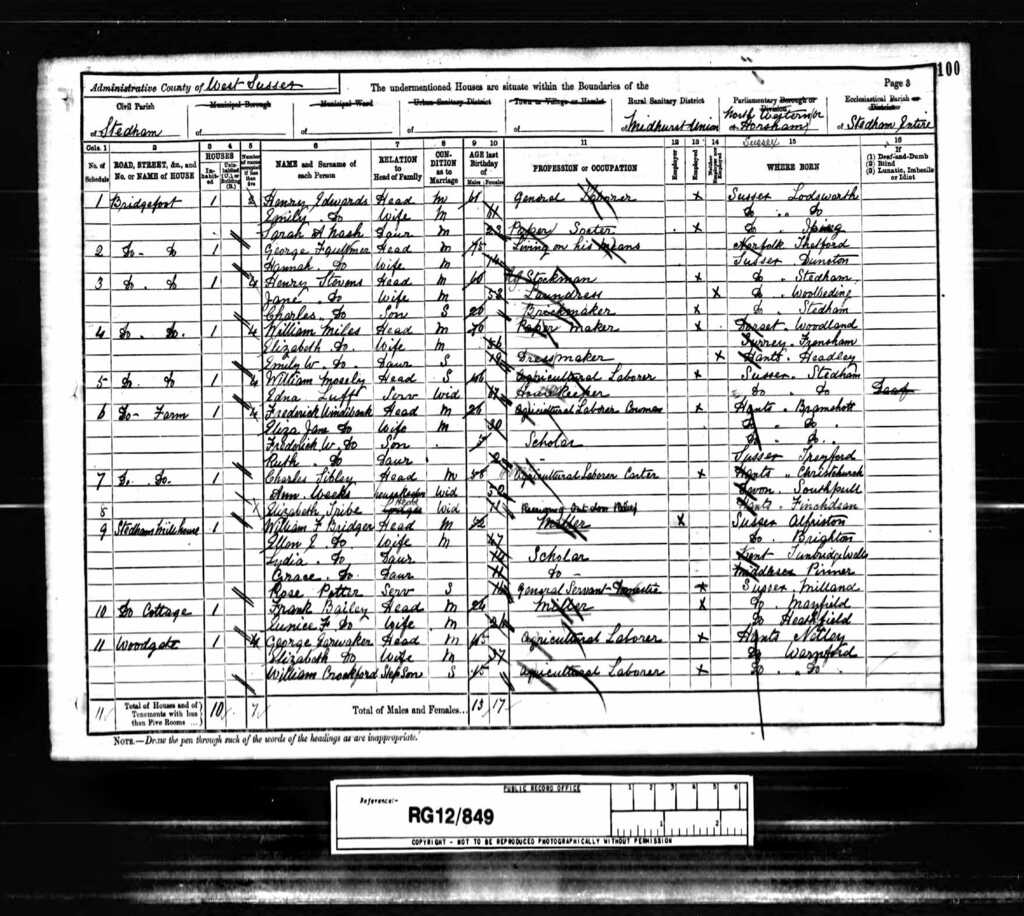 100
Administrative County of West Sussex The undermentioned Houses are situate within the Boundaries of the Page 3
Civil Parish Municipal Borough Municipal Ward Urban Sanitary District Town or Village or Hamlet Rural Sanitary District Parliamentary Borough or Division Ecclesiastical Parish or District
of Stedham of of of of of Midhurst Union of North Western or Horsham Sussex of Stedham Entire
Cols. 1 2 3 4 5 6 7 8 9 10 11 12 13 14 15 16
No. of Schedule ROAD, STREET, &c., and No. or NAME of HOUSE HOUSES Inhabited Uninhabited (U.), or Building (B.) Number of rooms occupied if less than five NAME and Surname of each Person RELATION to Head of Family CONDITION as to Marriage AGE last Birthday of Males Females PROFESSION or OCCUPATION Employer Employed Neither Employer nor Employed WHERE BORN If (1) Deaf-and-Dumb (2) Blind (3) Lunatic, Imbecile or Idiot
1 Bridgefoot 1 Henry Edwards Head M 61 General Laborer x Sussex Lodsworth
Emily Do Wife M 61 Do Do
Sarah A Nash Daur M 23 Paper Sorter x Do Iping
2 Do Do 1 George Faulkner Head M 75 Living on his means Norfolk Thetford
Hannah Do Wife M 74 Sussex
3 Do Do 1 4 Henry Stevens Head M 60 Stockman x Do Stedham
Jane Do Wife M 58 Laundress x Do Woolbeding
Charles Do Son S 20 Brickmaker x Do Stedham
4 Do Do 1 4 William Miles Head M 70 Paper Maker x Dorset Woodland
Elizabeth Do Wife M 56 Surrey Frensham
Emily W. Do Daur S 19 Dressmaker x Hants Headley
5 Do Do 1 4 William Head S 46 Agricultural Laborer x Sussex Stedham
Edna Tufft Serv Wid 67 Housekeeper Do Do Deaf
6 Do Farm 1 4 Frederick Windibank Head M 26 Agricultural Laborer Cowman x Hants Bramshott
Eliza Jane Do Wife M 30 Do Do
Frederick W. Do Son 7 Scholar Do Do
Ruth Do Daur 2 Sussex Treyford
7 Do Do 1 Charles Sibley Head M 58 Agricultural Laborer Carter x Hants Christchurch
Ann Weeks Housekeeper Wid 50 Devon Southpull
8 Elizabeth Tribe Head Lodger Wid 71 Receiving Out door Relief Hants Finchdean
9 Stedham Mill House 1 William F Bridger Head M 52 Miller x Sussex Alfriston
Ellen E Do Wife M 47 Do Brighton
Lydia Do Daur 14 Scholar Kent Tunbridge Wells
Grace Do Daur 11 Do Middlesex Pinner
Rose Potter Serv S General Servant Domestic x Sussex Milland
10 Do Cottage 1 Frank Bailey Head M 24 Miller x Do Mayfield
Eunice F Do Wife M Do Heathfield
11 Woodgate 1 4 George Head M 45 Agricultural Laborer x Hants Netley
Elizabeth Do Wife M 47 Do Warnford
William Crockford Stepson S 15 Agricultural Laborer x Do Do
11 Total of Houses and of Tenements with less than Five Rooms ... 10 7 Total of Males and Females... 13 17
NOTE.—Draw the pen through such of the words of the headings as are inappropriate.
PUBLIC RECORD OFFICE
Reference:-
RG12/849
1 2 3 4 5 6
1 2
COPYRIGHT - NOT TO BE REPRODUCED PHOTOGRAPHICALLY WITHOUT PERMISSION